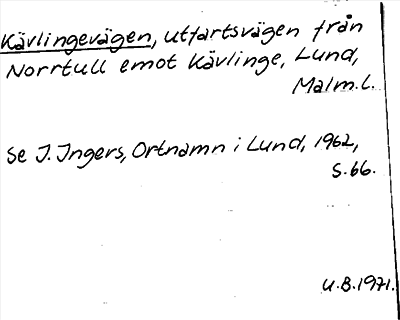 Kävlingevägen, utfartsvägen från
Norrtull emot Kävlinge, Lund,
Malm.l.
Se J. Ingers, Ortnamn i Lund, 1962,
s.66.
U.B.1971.